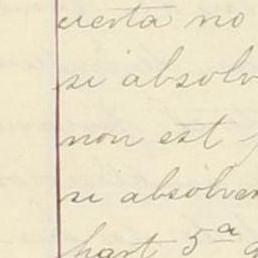 certa no
si absolv
non est
si absolver
part 5a